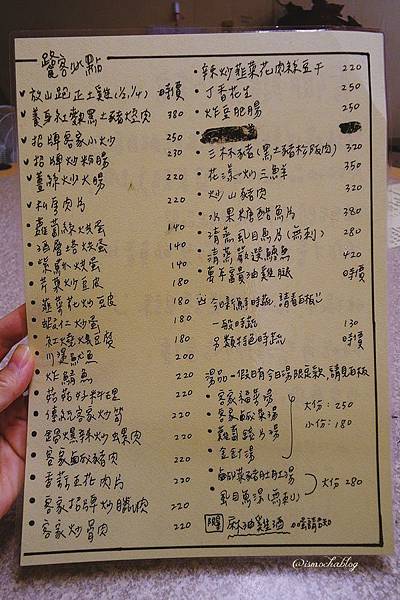 饕客必點
放山跑正土雞(½,¼) 時價
養身紅麴黑土豬燒肉 380
招牌客家小炒 250
招牌炒粄腸 230
薑絲炒大腸 220
私房肉片 220
蘿蔔絲烘蛋 140
九層塔烘蛋 140
紫蘇烘蛋 140
芹菜炒豆皮 180
韭菜花炒豆皮 180
蝦仁炒蛋 180
紅燒爆豆腐 180
川燙魷魚 200
炸鱔魚 220
菇菇好料理 220
傳統客家炒筍 220
醬爆辣炒螺肉 220
客家鹹豬肉 220
香蒜豆乾肉片 220
客家招牌炒臘肉 220
客家炒骨肉 220
辣炒韭菜花肉絲豆干 220
丁香花生 250
炸豆肥腸 250
三杯豬(黑土豬松阪肉) 320
花漾炒三鮮 350
炒山豬肉 320
水果糖醋魚片 380
清蒸虱目魚片(無刺) 280
清蒸嚴選鱸魚 420
萬年富貴油雞腿 時價
今日新鮮時蔬,請看白板!!
一般時蔬 130
另類特色時蔬 時價
湯品-假日有今日湯限定款,請見白板
客家福菜湯
客家鹹菜湯
蘿蔔鑲片湯
金針湯
大份:250
小份:180
鹹菜豬肚肚湯
虱目魚湯(無刺)
大份 280
限量 麻油雞酒 000請告知
@ismochablog